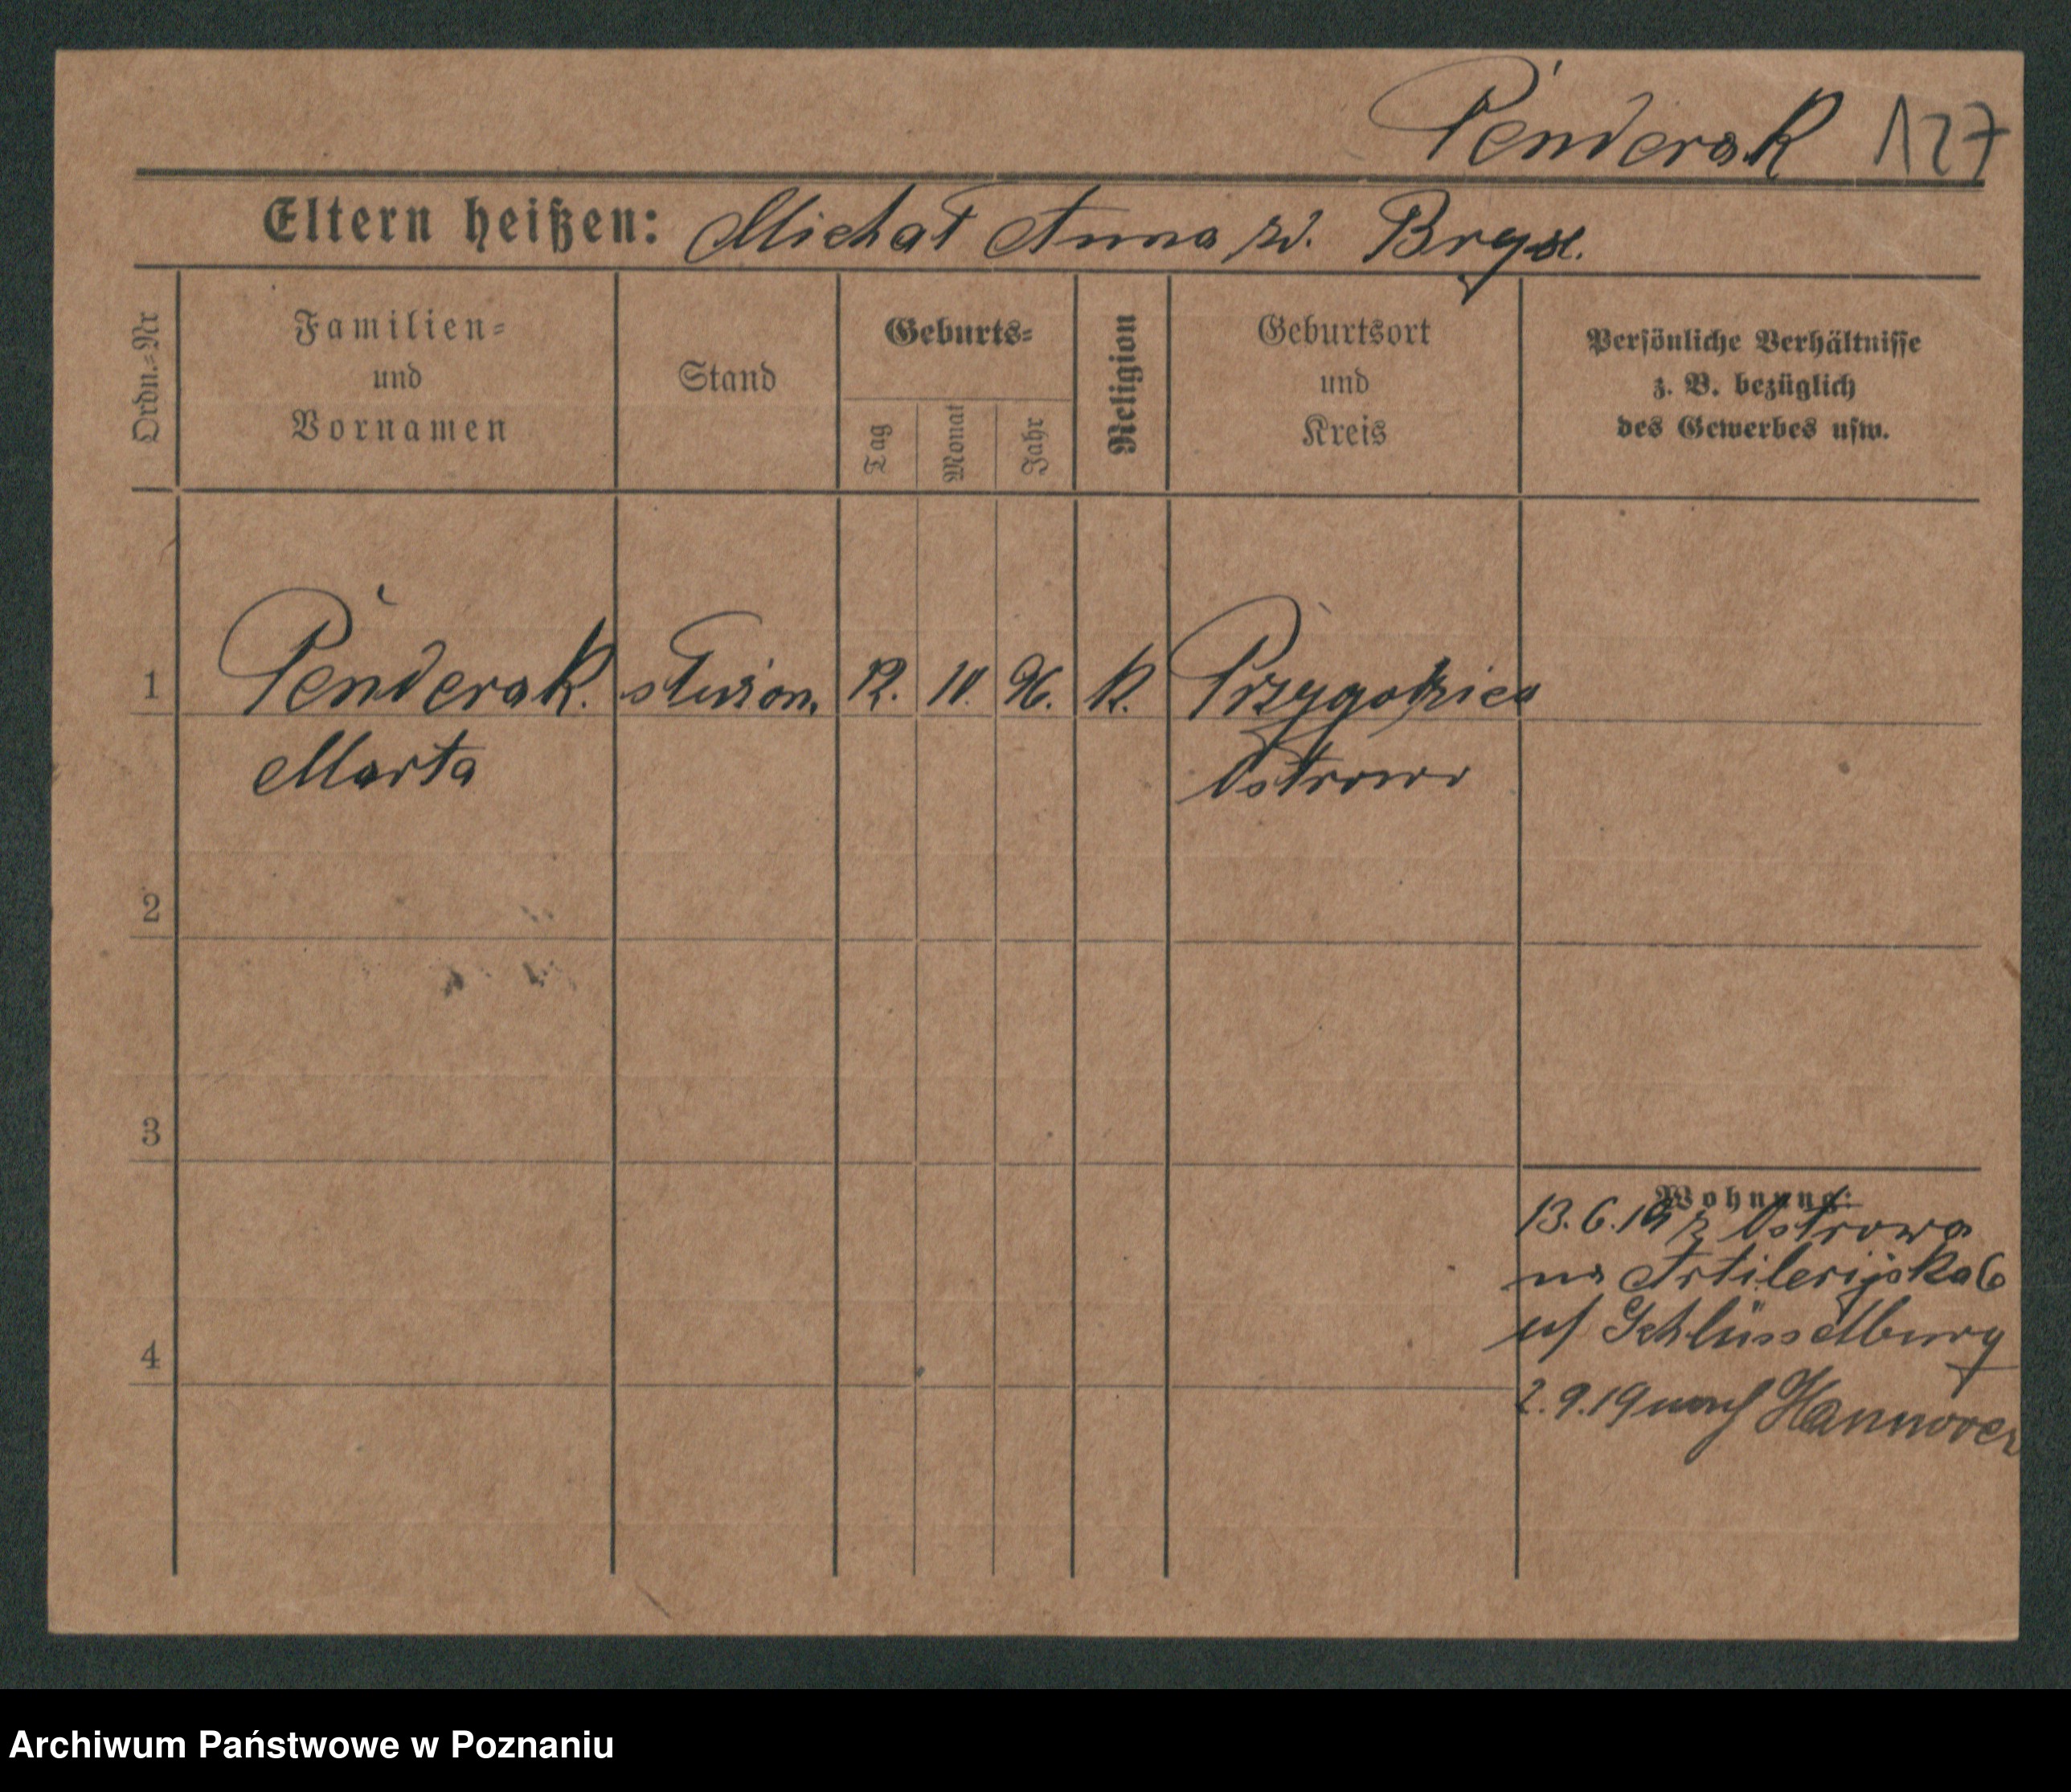 Penderak 127
Eltern heißen: Michał Anna zd.
Ordn.=Nr
Familien=
und
Vornamen
Stand
Geburts=
Tag
Monat
Jahr
Religion
Geburtsort
und
Kreis
Persönliche Verhältnisse
z. B. bezüglich
des Gewerbes usw.
1 Penderak. 12. 96. K. Przygodzice
Marta Ostrowo
2
3
4
Wohnung:
13.6.19 z Ostrowa
na Artilerijska 6
u/ Schlüsselburg
2.9.19 nach Hannover
Archiwum Państwowe w Poznaniu